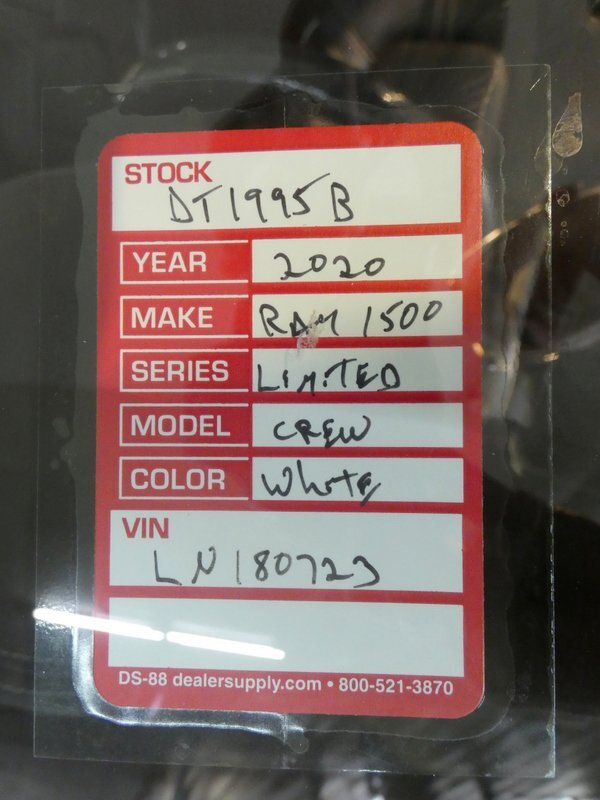 STOCK
DT1995B
YEAR 2020
MAKE RAM 1500
SERIES LIMITED
MODEL CREW
COLOR White
VIN
LN180723
DS-88 dealersupply.com • 800-521-3870